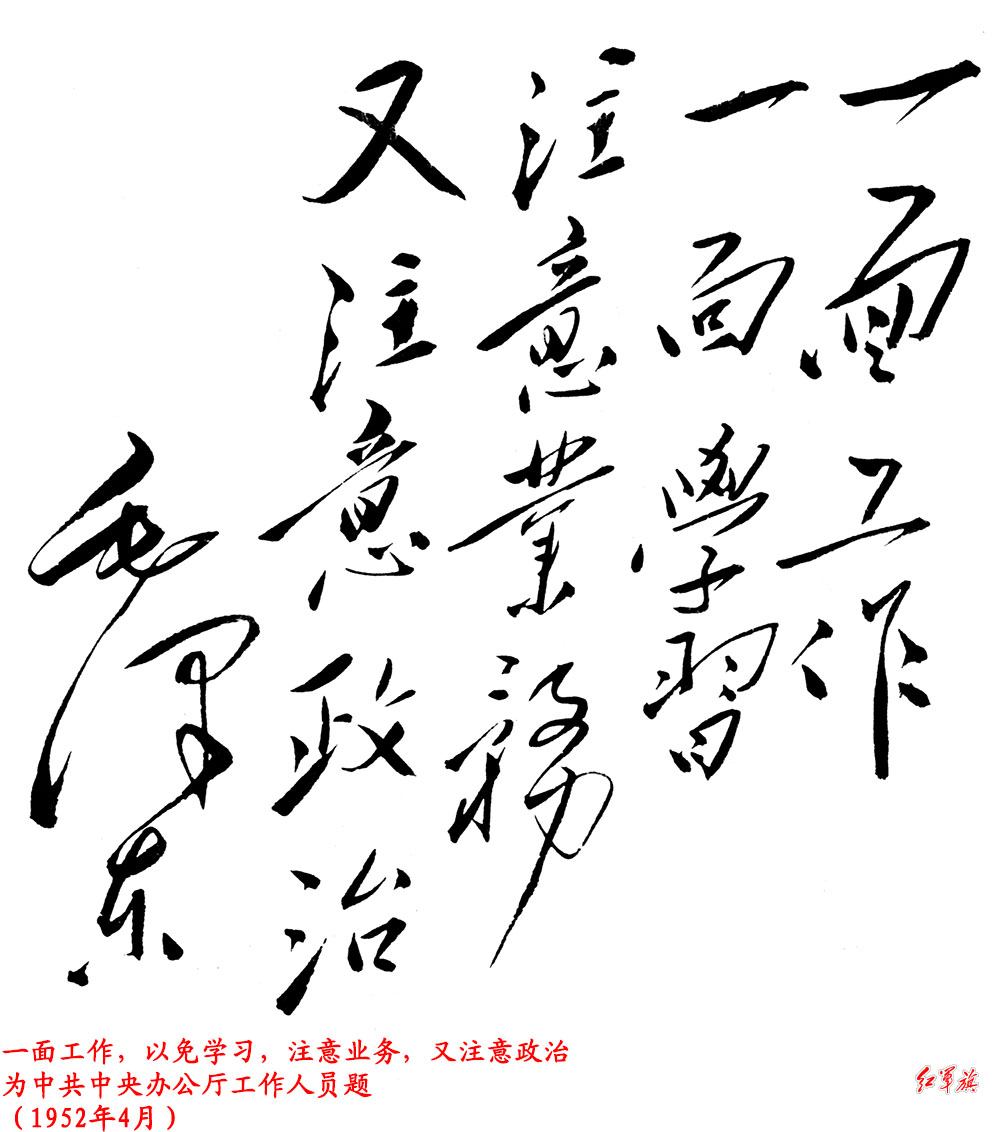 一面工作
一面學習
注意業務
又注意政治
毛澤东
一面工作，以免学习，注意业务，又注意政治
为中共中央办公厅工作人员题
（1952年4月）
红军旗